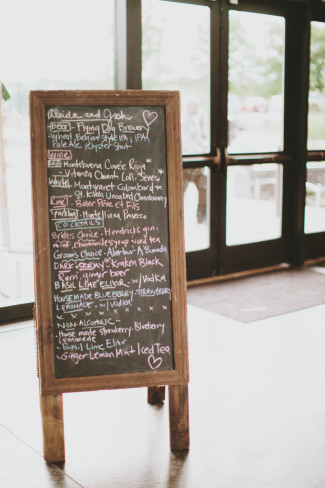 and Josh
Beer - Flying Dog Brewery
Wheat, Belgian Style IPA, IPA,
Pale Ale, Oyster Stout
Wine
Red - Montebuena Cuvée Rioja *
- Vitanza Chianti Coll. Senesi *
White - Montgravet Colombard *
St. Kilda Unoaked Chardonnay
Rosé - Bieler Père et Fils
Sparkling - Prosecco
COCKTAILS
Brides Choice - Hendricks gin,
mint, chamomile syrup iced tea
Grooms Choice -
DARK + STORMY - Kraken Black
Rum, ginger beer
BASIL LIME ELIXIR - w/ Vodka
HOUSEMADE BLUEBERRY, STRAWBERRY
LEMONADE - w/ VODKA
x x x x x x x x x
NON ALCOHOLIC -
- House made Strawberry Blueberry
Lemonade
- Basil Lime Elixir
- Ginger Lemon Mint Iced Tea